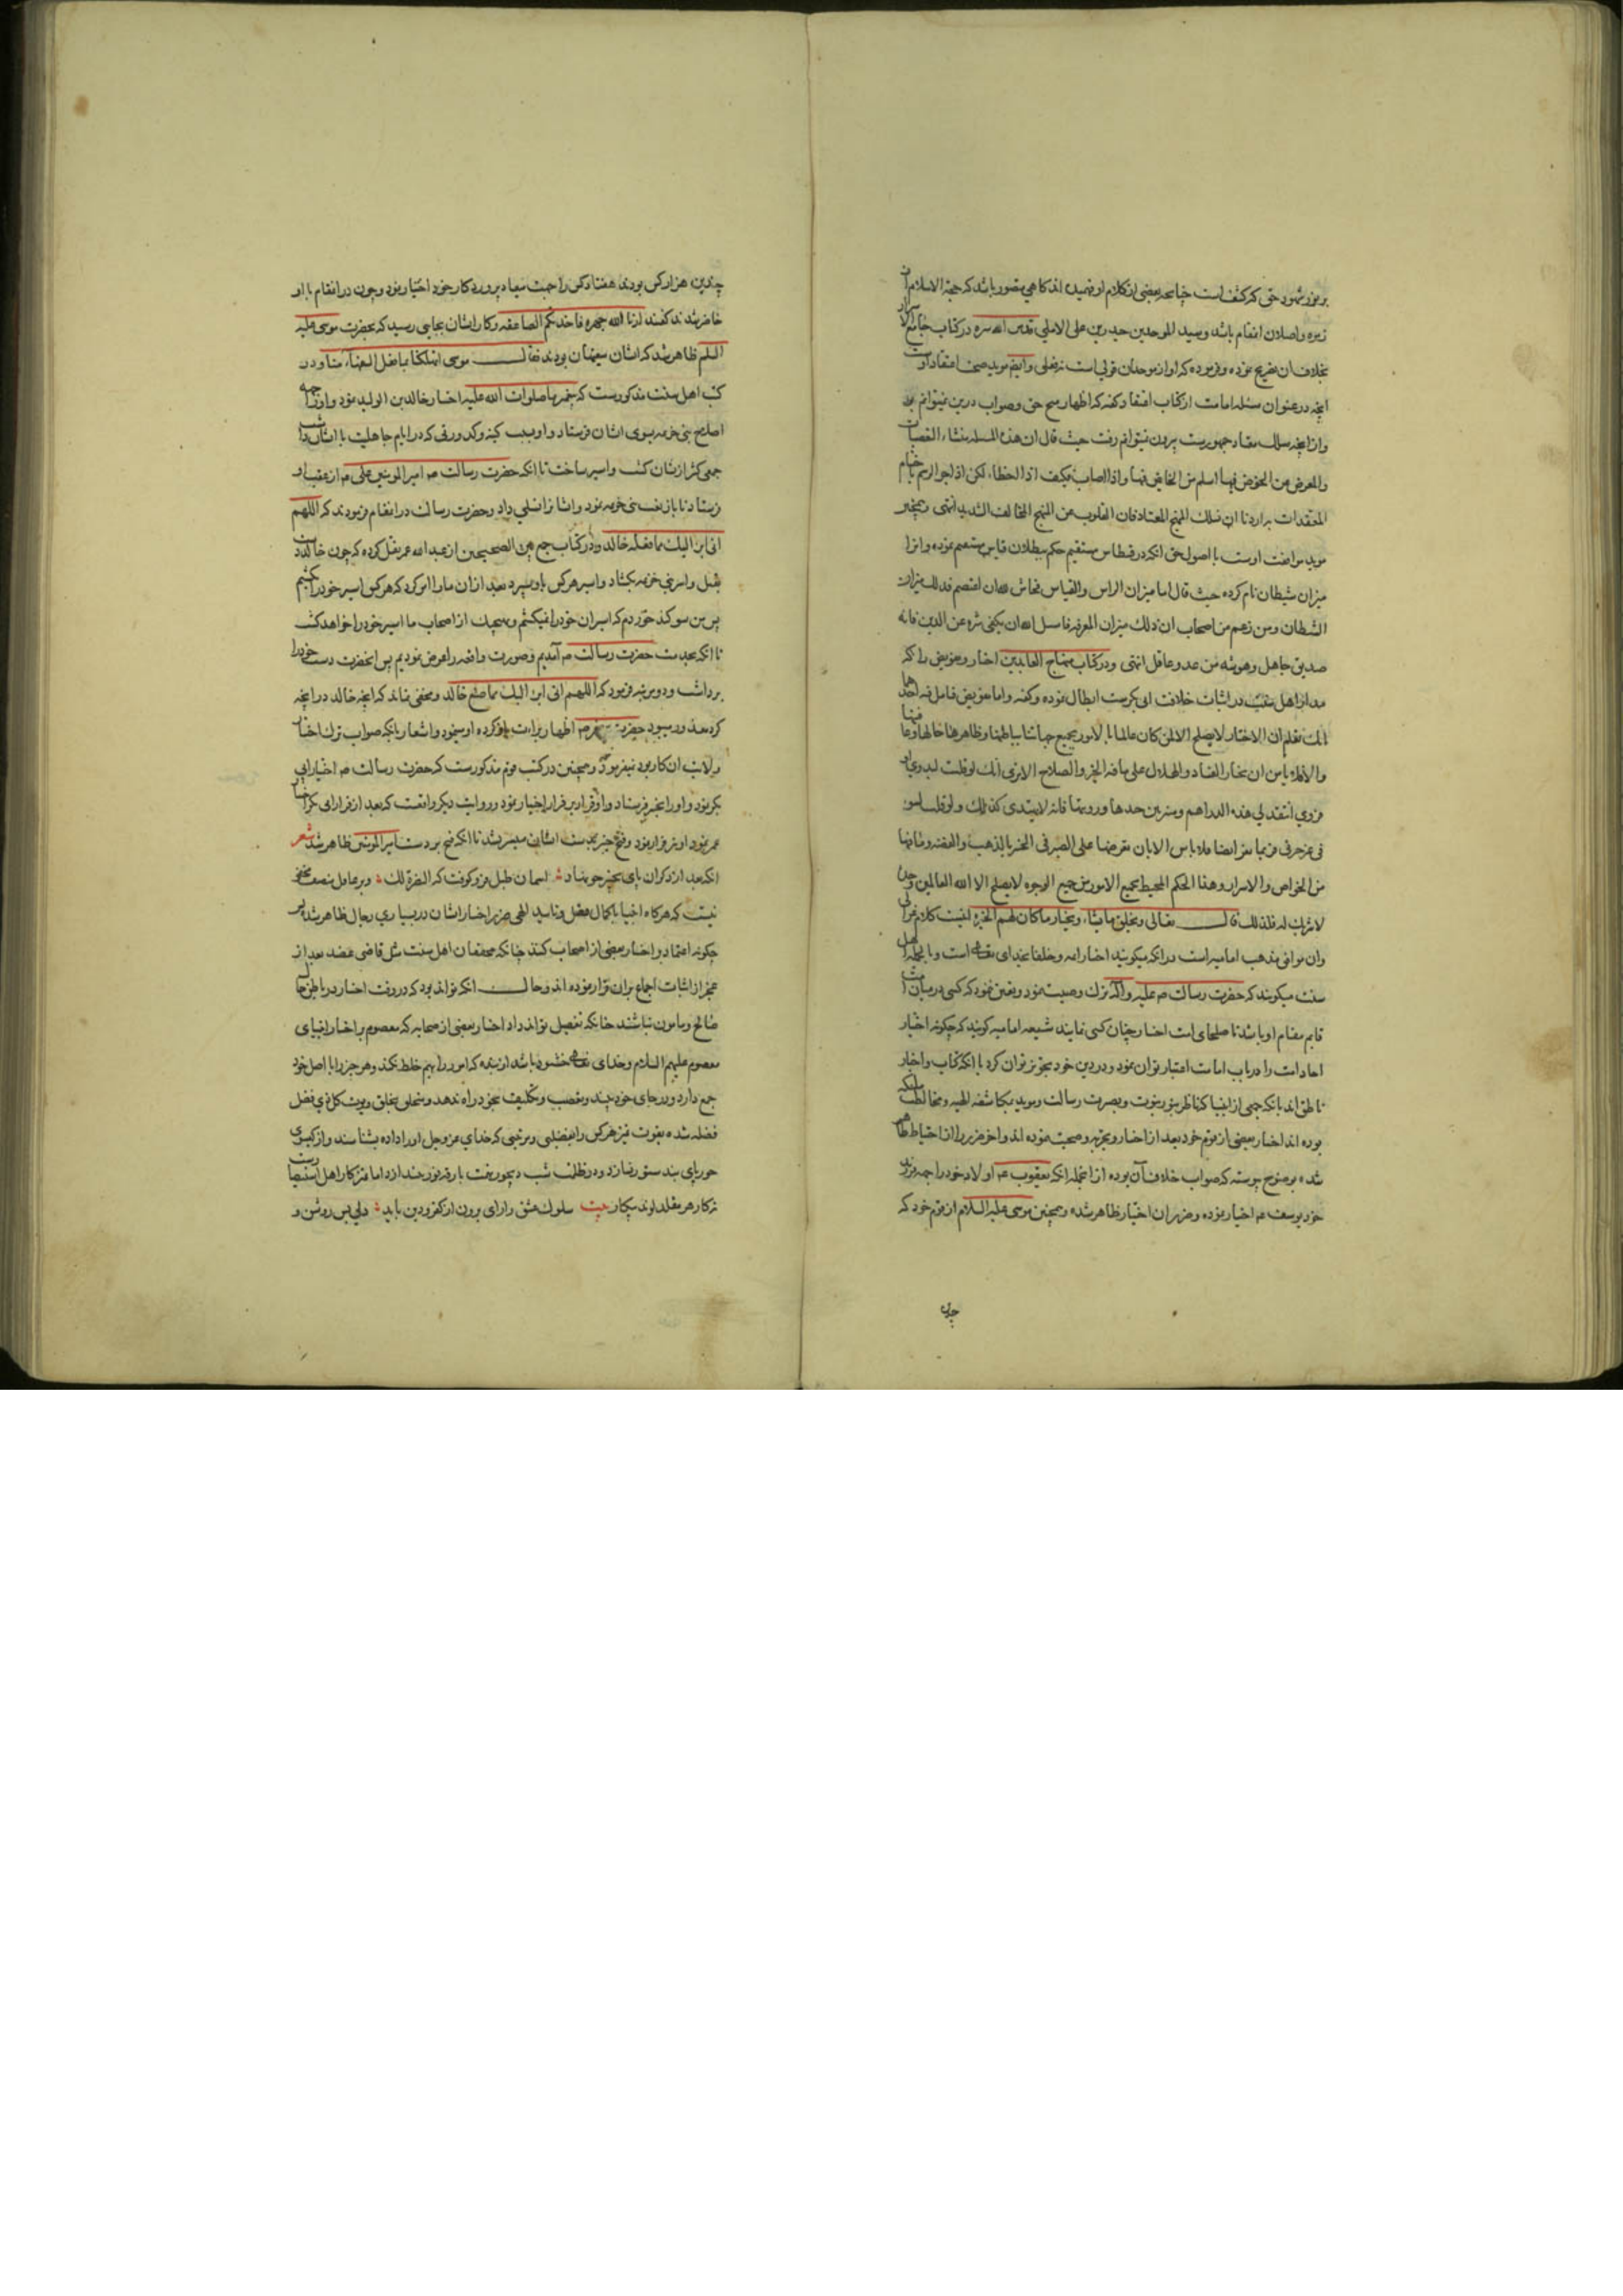 بر نور شهود حق که کشف است چنانچه بعضی از کلام او فهمیده اند کاهی متصور باشد که حجة الاسلام از
زمره واصلان انمقام باشد و سید الموحدین حیدر بن علی الاملی قدس الله سره در کتاب جامع الاسرار
بخلاف ان تصریح نموده و فرموده که او از موحدان قولی است نه فعلی و ایضا موید صحت اعتقاد اوست
انچه در عنوان مسئله امامت از کتاب اقتصاد کفته که اظهار محض حق و صواب درین نمیتوانم
و از انچه سالک معتاد جمهورست بیرون نمیتوانم رفت حیث قال ان هذه المسئله منشاء التعصبات
والمعرض من الخوض فیها اسلم من الخائض فیها و اذا اصاب فکیف اذا اخطاء لکن اذا جرا الرسم باختتام
المعتقدات به اردنا ان نسلک المنهج المعتاد فان القلوب عن المنهج المخالف الشدید انتهی و همچنین
موید موافقت اوست با اصول حق انکه در قسطاس مستقیم حکم ببطلان قیاس نموده و انرا
میزان شیطان نام کرده حیث قال اما میزان الرای و القیاس فحاش لله ان اعتصم فذلک میزان
الشیطان و من زعم من اصحابی ان ذلک میزان المعرفه فاسل الله ان یکفی شره عن الدین فانه
صدیق جاهل و هو شر من عدو عاقل انتهی و در کتاب منهاج العابدین اختیار و تفویض را که
مدار اهل سنت در اثبات خلافت ابی بکرست ابطال نموده و کفته و اما تفویض فتامل فیه احدهما
انک تعلم ان الاختیار لا یصلح الا لمن کان عالما بالامور بجمیع جهاتها باطنها و ظاهرها حالها و عاقبتها
والا فلا یامن ان یختار الفساد و الهلاک علی ما فیه الخیر و الصلاح الا تری انک لو قلت لبدوی او
قروی انتقد لی هذه الدراهم و میز بین جیدها و ردیها فانه لا یهتدی لذلک و لو قلت لسوقی
غیر صیرفی فربما یعسر ایضا فلا یامن الا بان تعرضها علی الصیرفی الخبیر بالذهب و الفضه و ما فیها
من الخواص و الاسرار و هذا الحکم المحیط بجمیع الامور من جمیع الوجوه لا یصلح الا لله العالمین وحده
لا شریک له فلذلک قال تعالی و یخلق ما یشاء و یختار ما کان لهم الخیره انیست کلام غزالی
و ان موافق مذهب امامیه است در انکه میکویند اختیار امه و خلفا بخدای تعالی است و بالجمله اهل
سنت میکویند که حضرت رسالت ص علیه و اله ترک وصیت نمود و تعین نفرمود که کسی در میان امت
قایم مقام او باشد تا صلحای امت اختیار چنان کسی نمایند شیعه امامیه کویند که چکونه اختیار
احاد امت را در باب امامت اعتبار توان نمود و در دین خود تجویز توان کرد با انکه کتاب و اخبار
ناطق اند بانکه جمعی از انبیا که ناظر بنور نبوت و بصیرت رسالت و موید بمکاشفه الهیه و مخاطبه ملائکه
بوده اند اختیار بعضی از قوم خود بعد از اختبار و تجربه و صحبت نموده اند و اخر ضرر را از احتیاط ظاهر
شده بوضوح پیوسته که صواب خلاف آن بوده از انجمله انکه یعقوب ع م اولاد خود را جهه بردن
خود یوسف ع م اختیار نموده و ضرر ان اختیار ظاهر شده و همچنین موسی علیه السلام از قوم خود که
چندین
چندین هزار کس بودند هفتاد کس را جهت میعاد پروردکار خود اختیار نمود و چون در انمقام با او
حاضر شدند کفتند ارنا الله جهرة فاخذتکم الصاعقه و کار ایشان بجایی رسید که بحضرت موسی علیه
السلم ظاهر شد که ایشان سفیهان بودند فقال موسی اتهلکنا بما فعل السفهاء منا و در
کتب اهل سنت مذکورست که پیغمبر ما صلوات الله علیه اختیار خالد بن الولید نمود و او را جهه
اصلاح بنی خزیمه بسوی ایشان فرستاد و او بسبب کینه و کدورتی که در ایام جاهلیت با ایشان داشت
جمعی کثیر از ایشان کشت و اسیر ساخت تا انکه حضرت رسالت ص امیر المومنین علی ع م از عقب او
فرستاد تا بازنشست بنی خزیمه نمود و ایشانرا تسلی داد و حضرت رسالت در انمقام فرمودند که اللهم
انی ابرء الیک مما فعله خالد و در کتاب جمع بین الصحیحین از عبد الله عمر نقل کرده که چون خالد دست
بقتل و اسر بنی خزیمه بکشاد و اسیر هر کس باو سپرد بعد از ان ما را امر کرد که هر کس اسیر خود را کشیم
پس من سوکند خوردم که اسیران خود را نمیکشم و هیچیک از اصحاب ما اسیر خود را نخواهد کشت
تا انکه بخدمت حضرت رسالت ص آمدیم و صورت واقعه را عرض نمودیم پس انحضرت دست خود را
برداشت و دو مرتبه فرمود که اللهم انی ابرء الیک مما صنع خالد و مخفی نماند که انچه خالد در انچه
کرد معذور میبود حضرت پیغمبر ص اظهار براءت از کرده او نمینمود و اشعار بانکه صواب ترک اختیار
ولایت ان کار بود نمیفرمود و همچنین در کتب قوم مذکورست که حضرت رسالت ص اختیار ابی
بکر نمود و او را بخیبر فرستاد و او قرار بر فرار اختیار نمود و در روایت دیکر واقعست که بعد از فرار ابی بکر اختیار
عمر نمود او نیز فرار نمود و فتح خیبر بدست ایشان میسر نشد تا انکه فتح بر دست امیر المومنین ظاهر شد شعر
انکه بعد از دکران پای بخیبر چو نهاد : اسمان طبل فرو کوفت که النصرة لک : و بر عاقل منصف مخفی
نیست که هرکاه انبیا با کمال عقل و تایید الهی ضرر اختیار ایشان در بسیاری رجال ظاهر شد پس
چکونه اعتماد بر اختیار بعضی از اصحاب کنند چنانکه محققان اهل سنت مثل قاضی عضد بعد از
عجز از اثبات اجماع بران قرار نموده اند و حال انکه تواند بود که در وقت اختیار در باطن حال
صالح و مامون نباشند چنانکه تفصیل تواند داد اختیار بعضی از صحابه که معصوم بر اختیار انبیای
معصوم علیهم السلام و خدای تعالی خشنود باشد از بنده که امور را بهم خلط نکند و هر جزء را با اصل خود
جمع دارد و در جای خود بیند و تعصب و تکلیف بخود راه ندهد و متحلی بخلق و یوت کل ذی فضل
فضله شده بقوت تمیز هر کس را بفضلی و مرتبتی که خدای عز و جل او را داده بشناسد و از کبوری
حور پای بند ستور نسازد و در ظلمت شب دیجور رخت بارقه نور خندازد اما تمیز کار اهل استبصار است
نه کار هر مقلد لوند بیکار بیت سلوک عشق را رای برون از کفر و دین باید : دلی بس روشن و